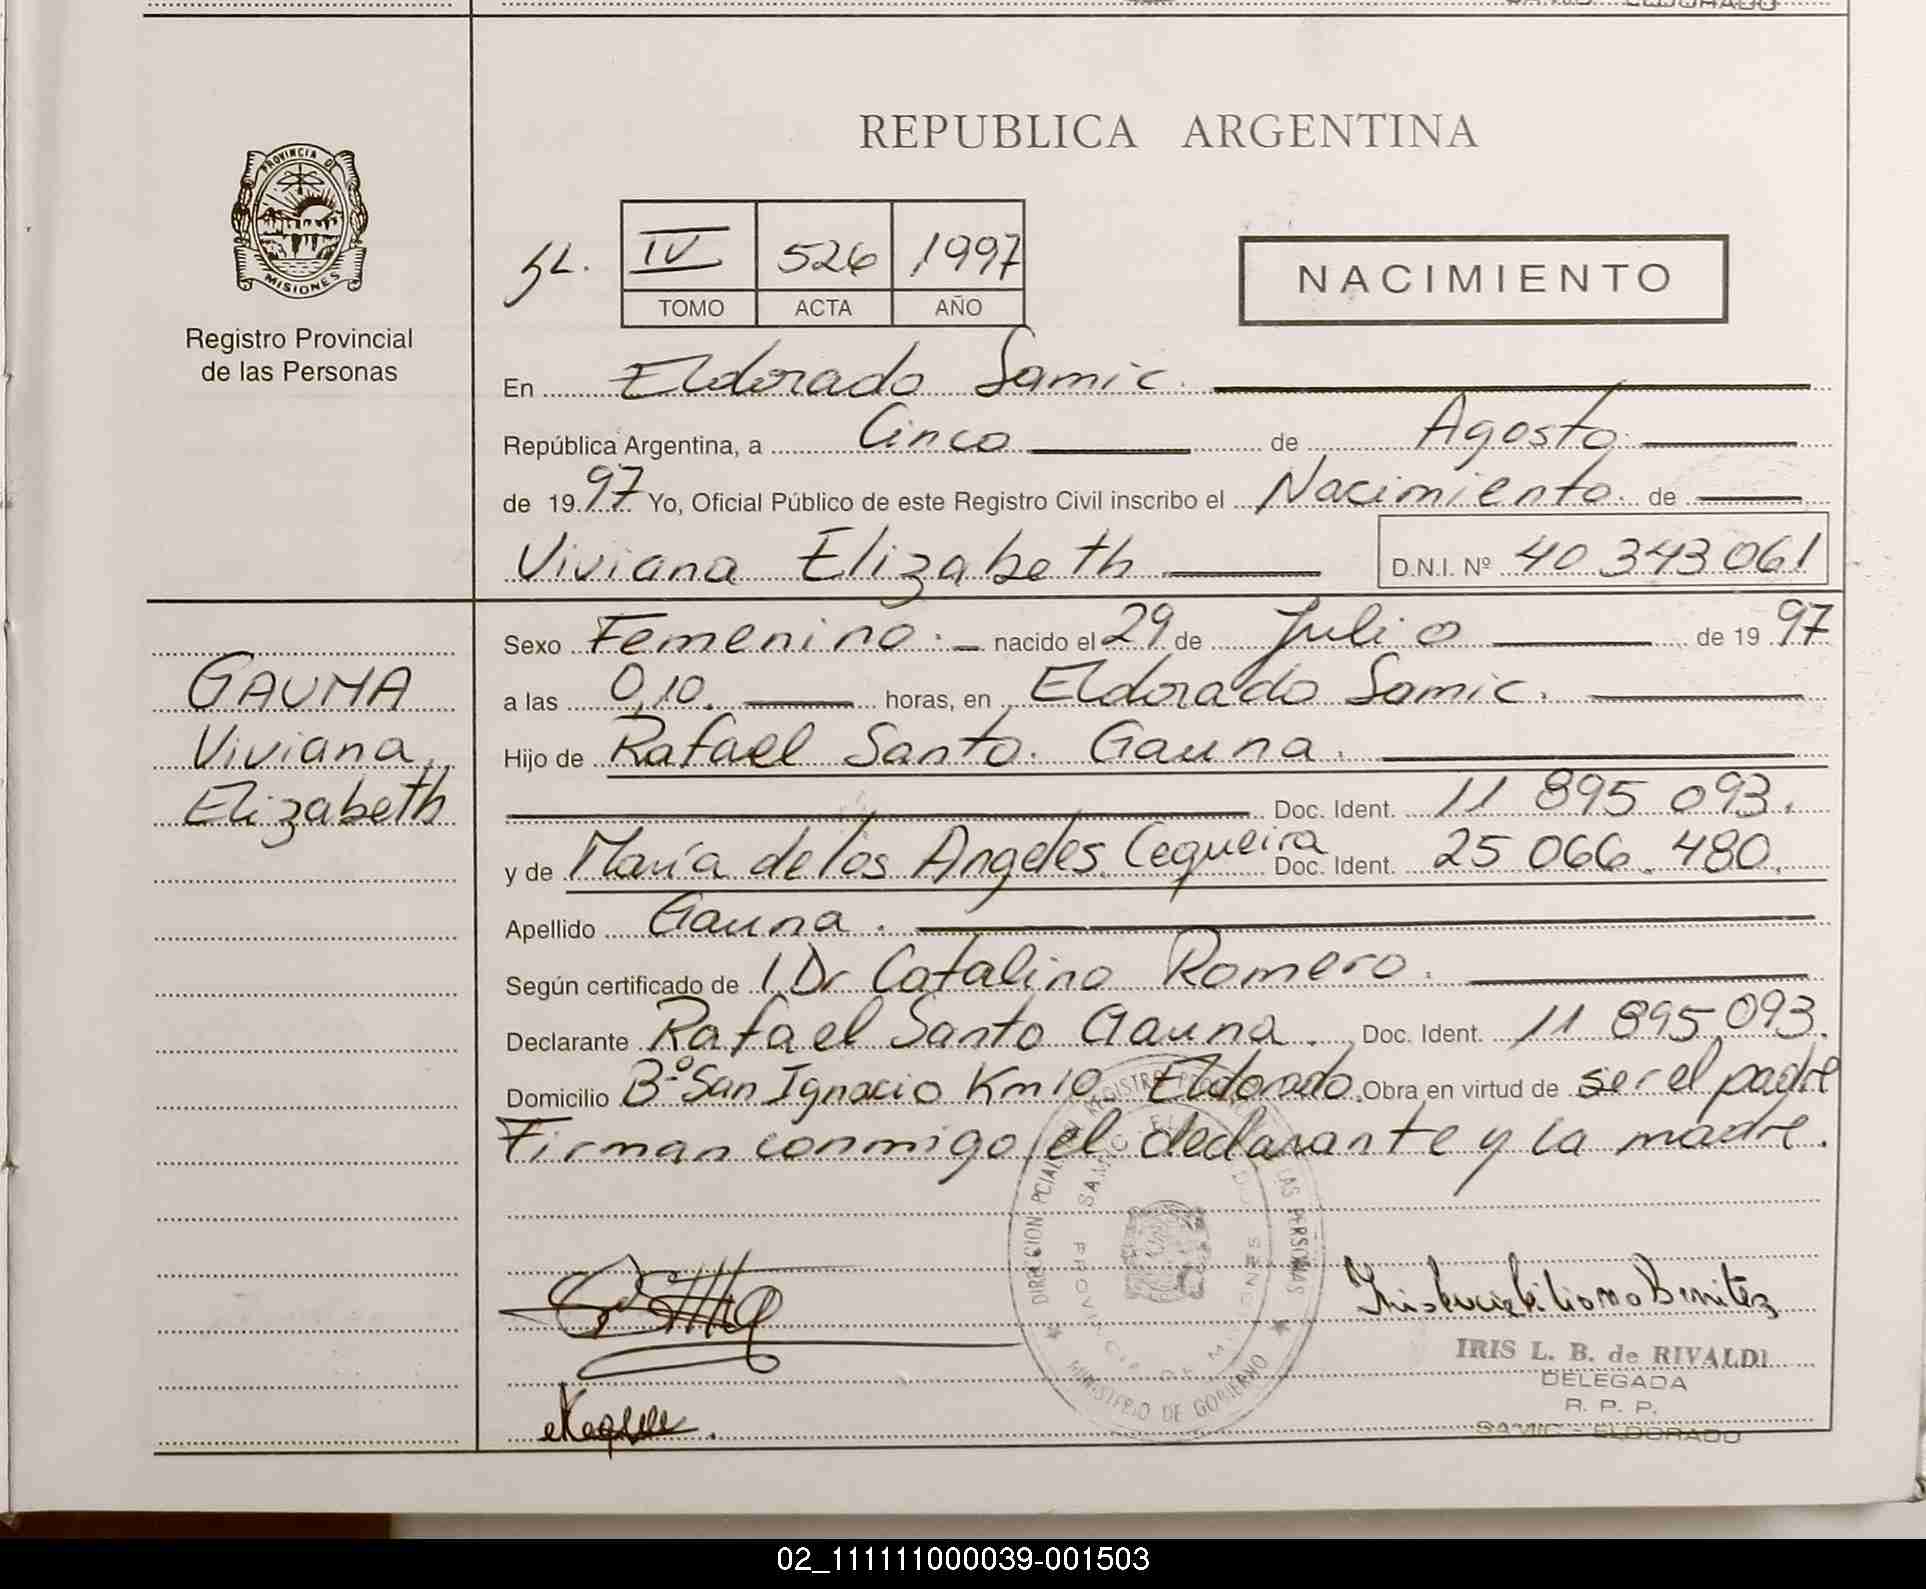 REPUBLICA ARGENTINA
PROVINCIA DE
MISIONES
Registro Provincial
de las Personas
IV 526 1997
TOMO ACTA AÑO
NACIMIENTO
En Eldorado Samic.
República Argentina, a Cinco de Agosto
de 1997 Yo, Oficial Público de este Registro Civil inscribo el Nacimiento de
Viviana Elizabeth D.N.I. Nº 40 343 061
GAUNA
Viviana
Elizabeth
Sexo Femenino. nacido el 29 de Julio de 1997
a las 0,10. horas, en Eldorado Samic.
Hijo de Rafael Santo. Gauna.
Doc. Ident. 11 895 093.
y de María de los Angeles Cequeira Doc. Ident. 25 066 480.
Apellido Gauna.
Según certificado de Dr Catalino Romero.
Declarante Rafael Santo Gauna. Doc. Ident. 11 895 093.
Domicilio Bº San Ignacio Km 10 Eldorado. Obra en virtud de ser el padre
Firman conmigo el declarante y la madre.
IRIS L. B. de RIVALDI
DELEGADA
R. P. P.
SAMIC - ELDORADO
02_111111000039-001503